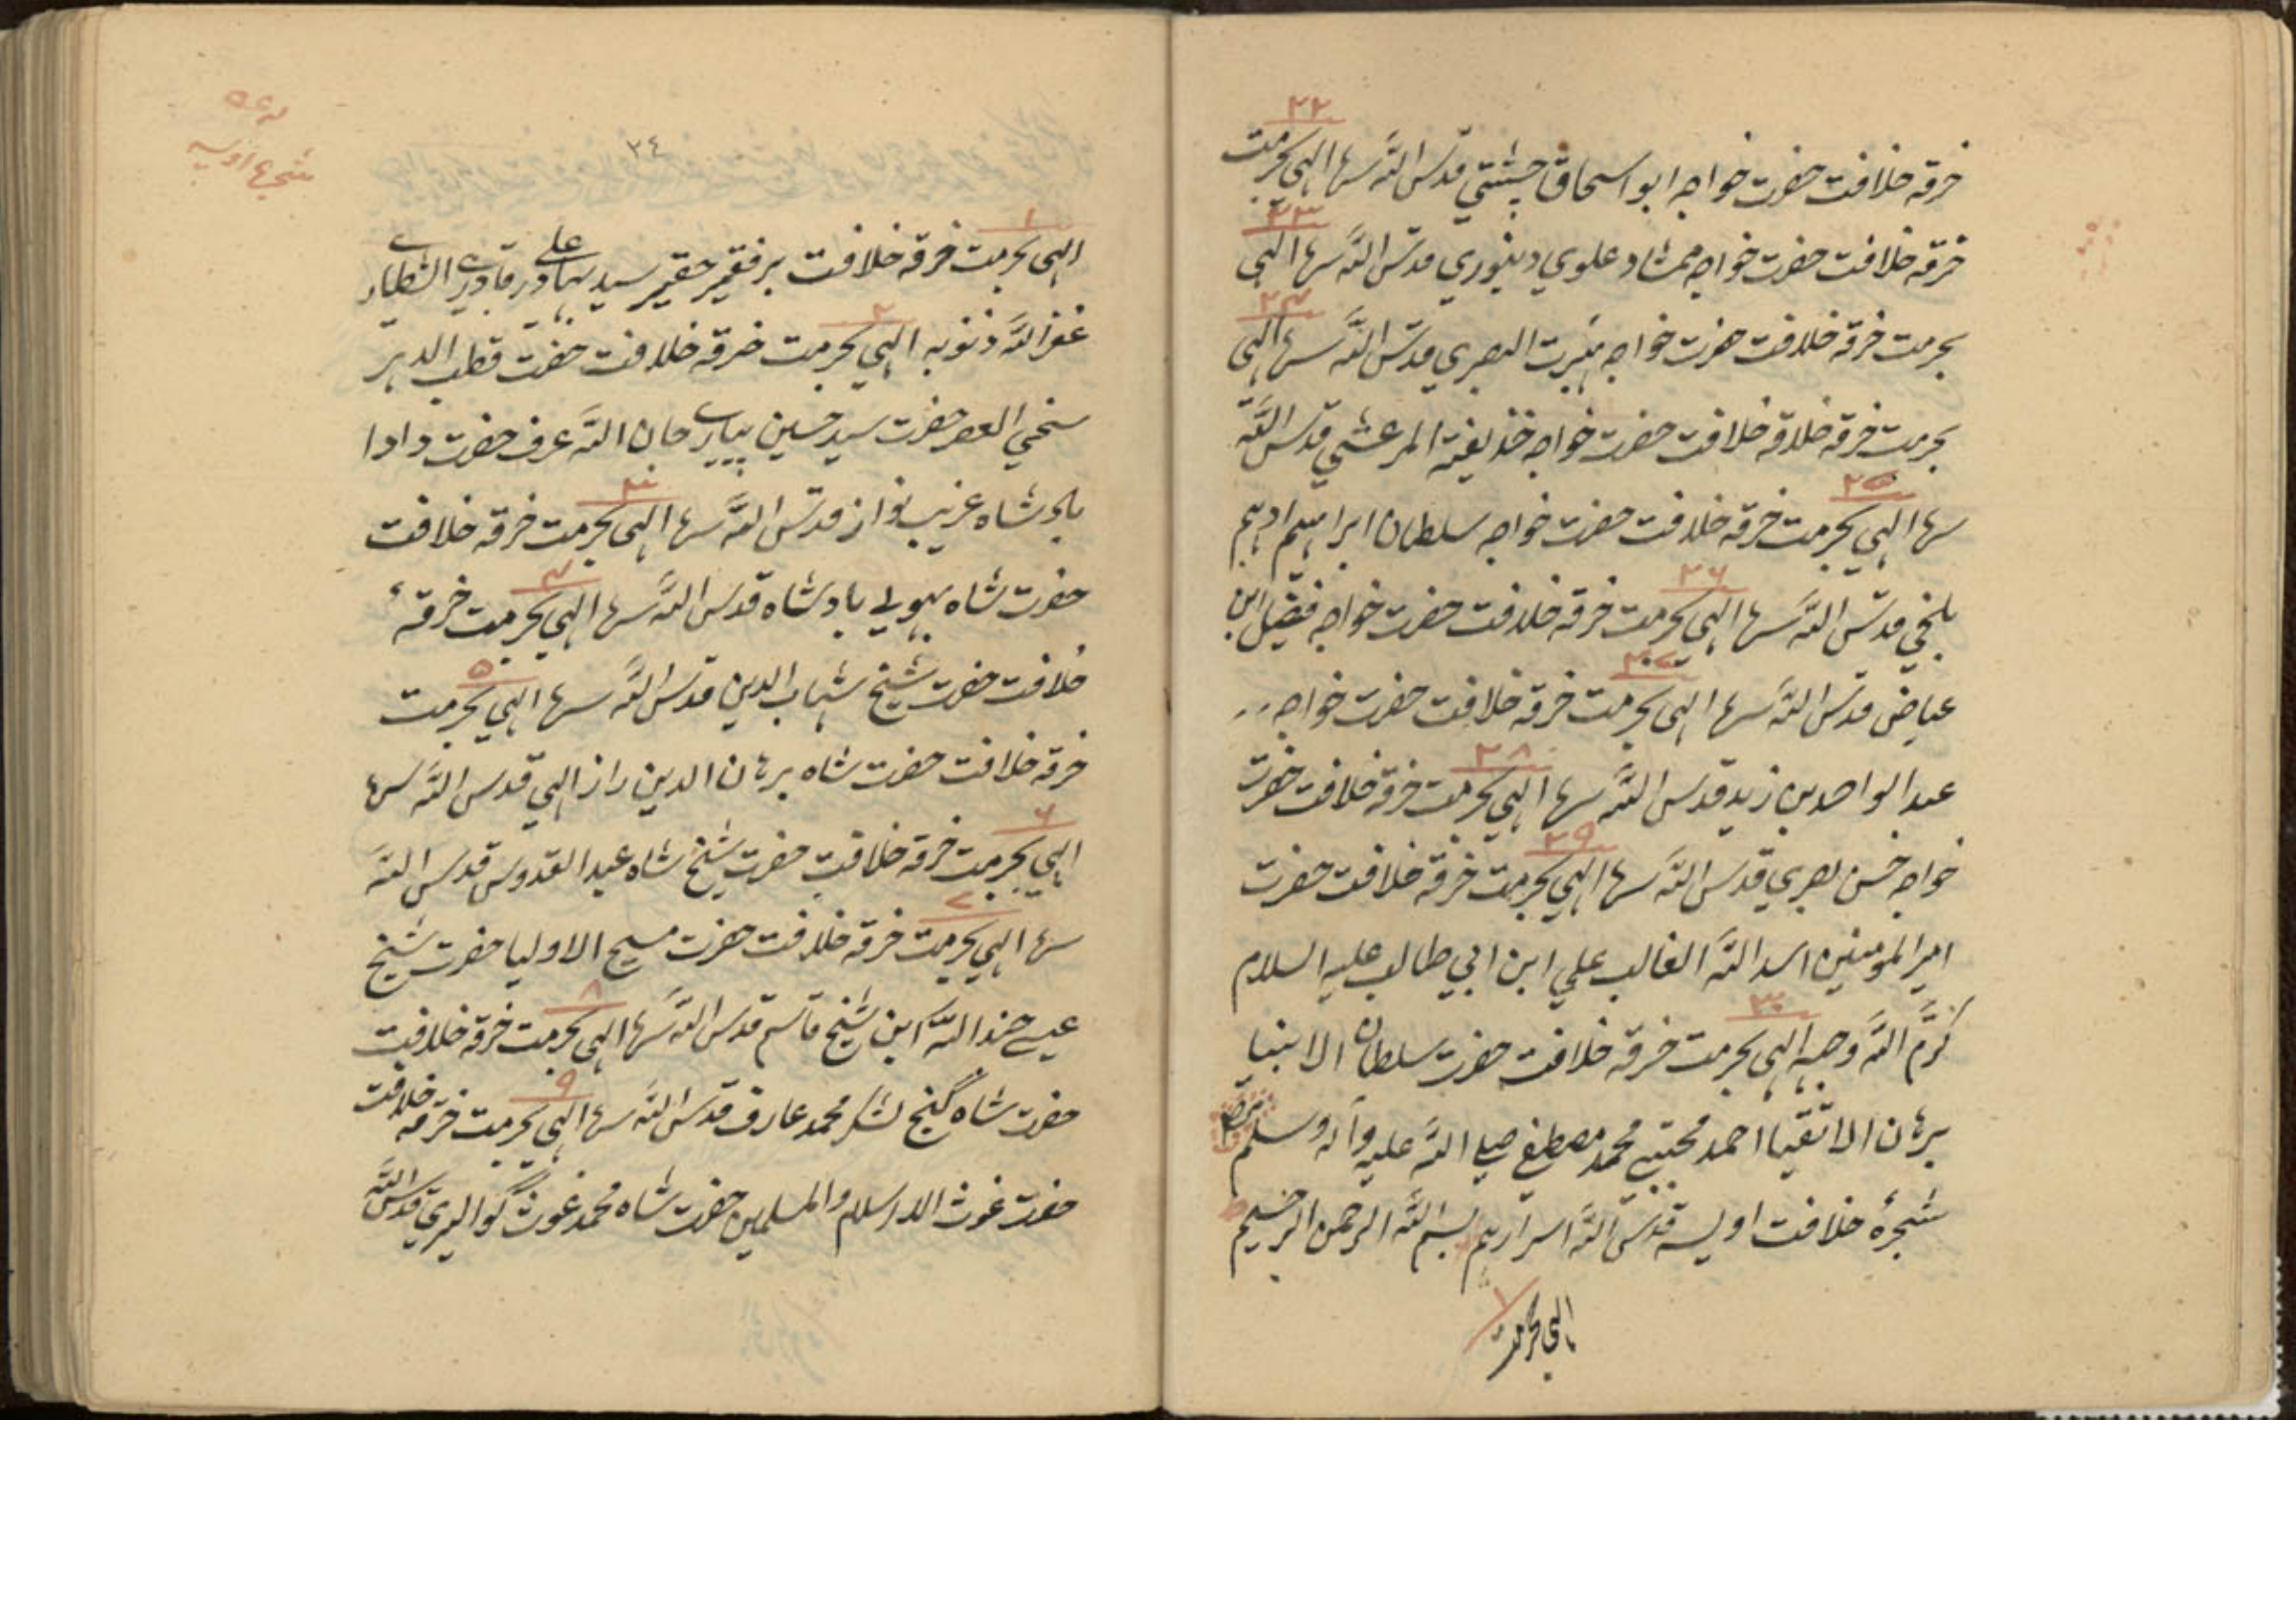 ۲۲
خرقه خلافت حضرت خواجه ابو اسحاق چشتي قدّس اللّه سرها الهي بحرمت
۲۳
خرقه خلافت حضرت خواجه ممشاد علوي دينوري قدّس اللّه سرها الهي
۲۴
بحرمت خرقه خلافت حضرت خواجه هبيرت البصري قدّس اللّه سرها الهي
بحرمت خرقه خلاقه خلافت حضرت خواجه خذيفته المرعشي قدّس اللّه
۲۵
سرها الهي بحرمت خرقه خلافت حضرت خواجه سلطان ابراهيم ادهم
۲۶
بلخي قدّس اللّه سرها الهي بحرمت خرقه خلافت حضرت خواجه فضيل ابن
۲۷
عياض قدّس اللّه سرها الهي بحرمت خرقه خلافت حضرت خواجه
۲۸
عبد الواحد بن زيد قدّس اللّه سرها الهي بحرمت خرقه خلافت حضرت
۲۹
خواجه حسن بصري قدس اللّه سرها الهي بحرمت خرقه خلافت حضرت
امير المومنين اسد اللّه الغالب علي ابن ابي طالب عليه السلام
۳۰
كرّم اللّه وجهه الهي بحرمت خرقه خلافت حضرت سلطان الانبيا
برهان الاتقيا احمد مجتبے محمد مصطفے صلے اللّه عليه وآله وسلم
شجرهٔ خلافت اويسه قدّس اللّه اسرارهم بسم اللّه الرحمن الرحيم
۱
الهي بحرمت
شجرهاویسیه
٣٤
۱
الهی بحرمت خرقه خلافت بر فقیر حقیر سید بهادر علی قادری الشطاری
۲
غفر اللّه ذنوبه الهي بحرمت خرقه خلافت حضرت قطب الدهر
سخي العصر حضرت سيد حسين پيارے جان اللّه عرف حضرت دادا
۳
بادشاه غريب نواز قدّس اللّه سرها الهي بحرمت خرقه خلافت
۴
حضرت شاه بهولے بادشاه قدس اللّه سرها الهي بحرمت خرقهٔ
۵
خلافت حضرت شيخ شهاب الدين قدّس اللّه سرها الهي بحرمت
خرقه خلافت حضرت شاه برهان الدين راز الهي قدس اللّه سرها
۶
الهي بحرمت خرقه خلافت حضرت شيخ شاه عبد القدوس قدس اللّه
۷
سرها الهي بحرمت خرقه خلافت حضرت مسيح الاوليا حضرت شيخ
۸
عيسے جند اللّه ابن شيخ قاسم قدس اللّه سرها الهي بحرمت خرقه خلافت
۹
حضرت شاه گنج لشكر محمد عارف قدّس اللّه سرها الهي بحرمت خرقه خلافت
حضرت غوث الاسلام والمسلمين حضرت شاه محمد غوث گواليري قدّس اللّه